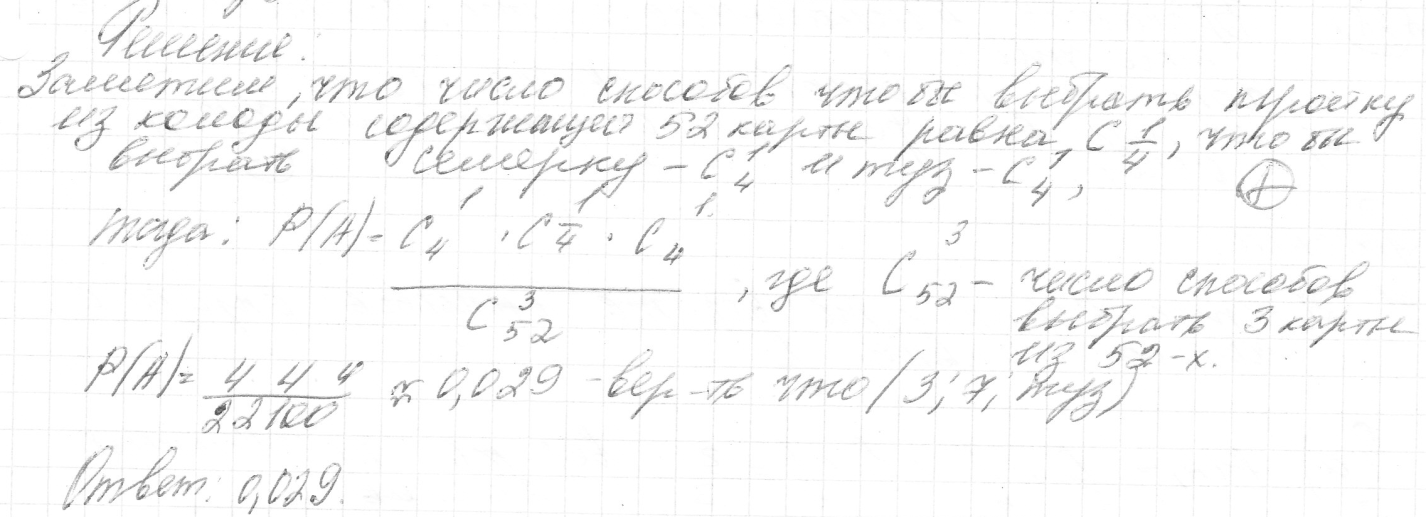 Решение:
Заметим, что число способов чтобы выбрать тройку
из колоды содержащей 52 карты равна C¹₄, чтобы
выбрать семерку – C¹₄ и туз – C¹₄,
тогда: P(A) = (C¹₄ · C¹₄ · C¹₄) / C³₅₂, где C³₅₂ – число способов
выбрать 3 карты
из 52-х.
P(A) = (4 4 4) / 22100 ≈ 0,029 – вер-ть что (3; 7; туз)
Ответ: 0,029.